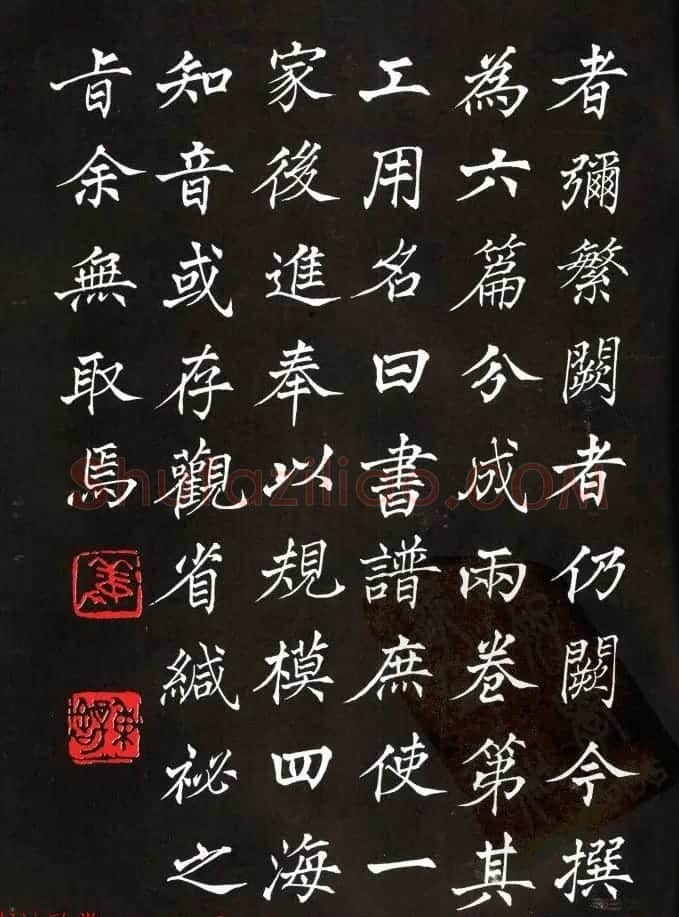 者彌繁闕者仍闕今撰
為六篇分成兩卷第其
工用名曰書譜庶使一
家後進奉以規模四海
知音或存觀省緘祕之
旨余無取焉
Shufaziliao.COM